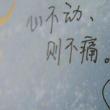 心不动、
则不痛。